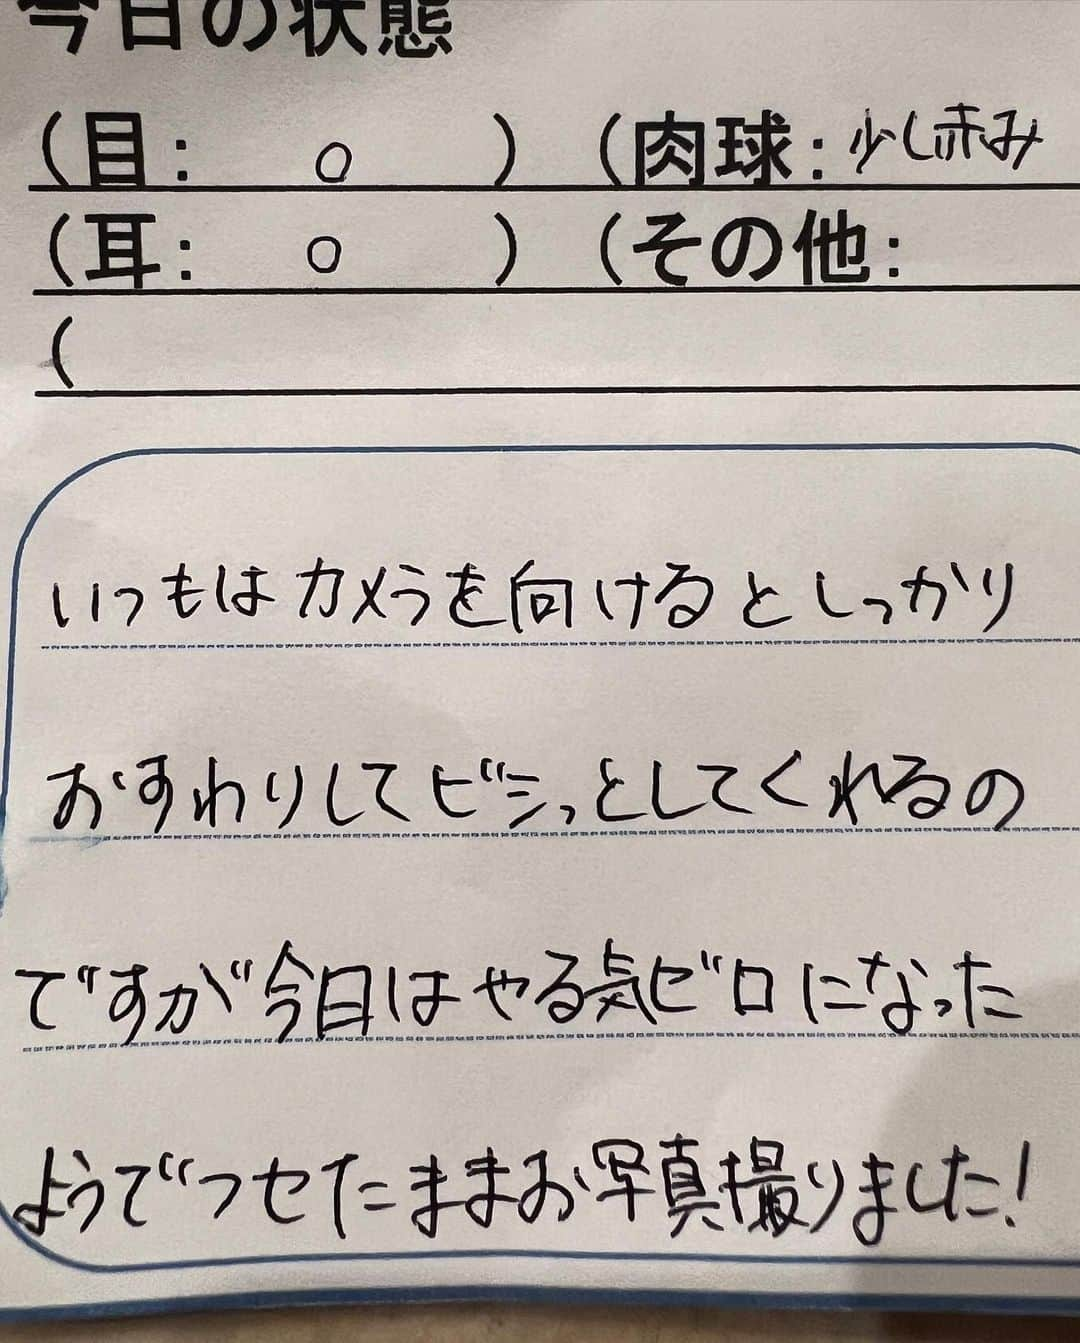 今日の状態
(目: ○ ) (肉球: 少し赤み
(耳: ○ ) (その他:
(
いつもはカメラを向けるとしっかり
おすわりしてビシっとしてくれるの
ですが今日はやる気ゼロになった
ようでフセたままお写真撮りました!